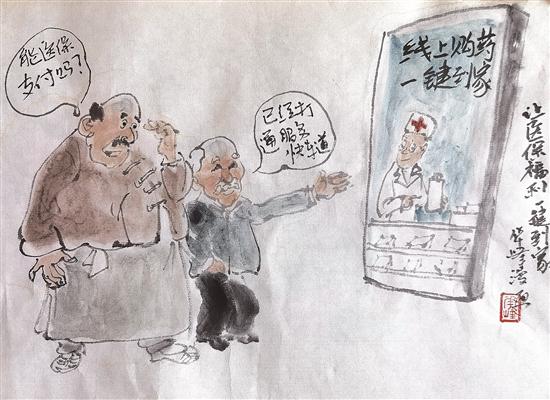 能医保
支付吗？
已经打
通服务
快车道
线上购药
一键到家
让医保福利一键到家